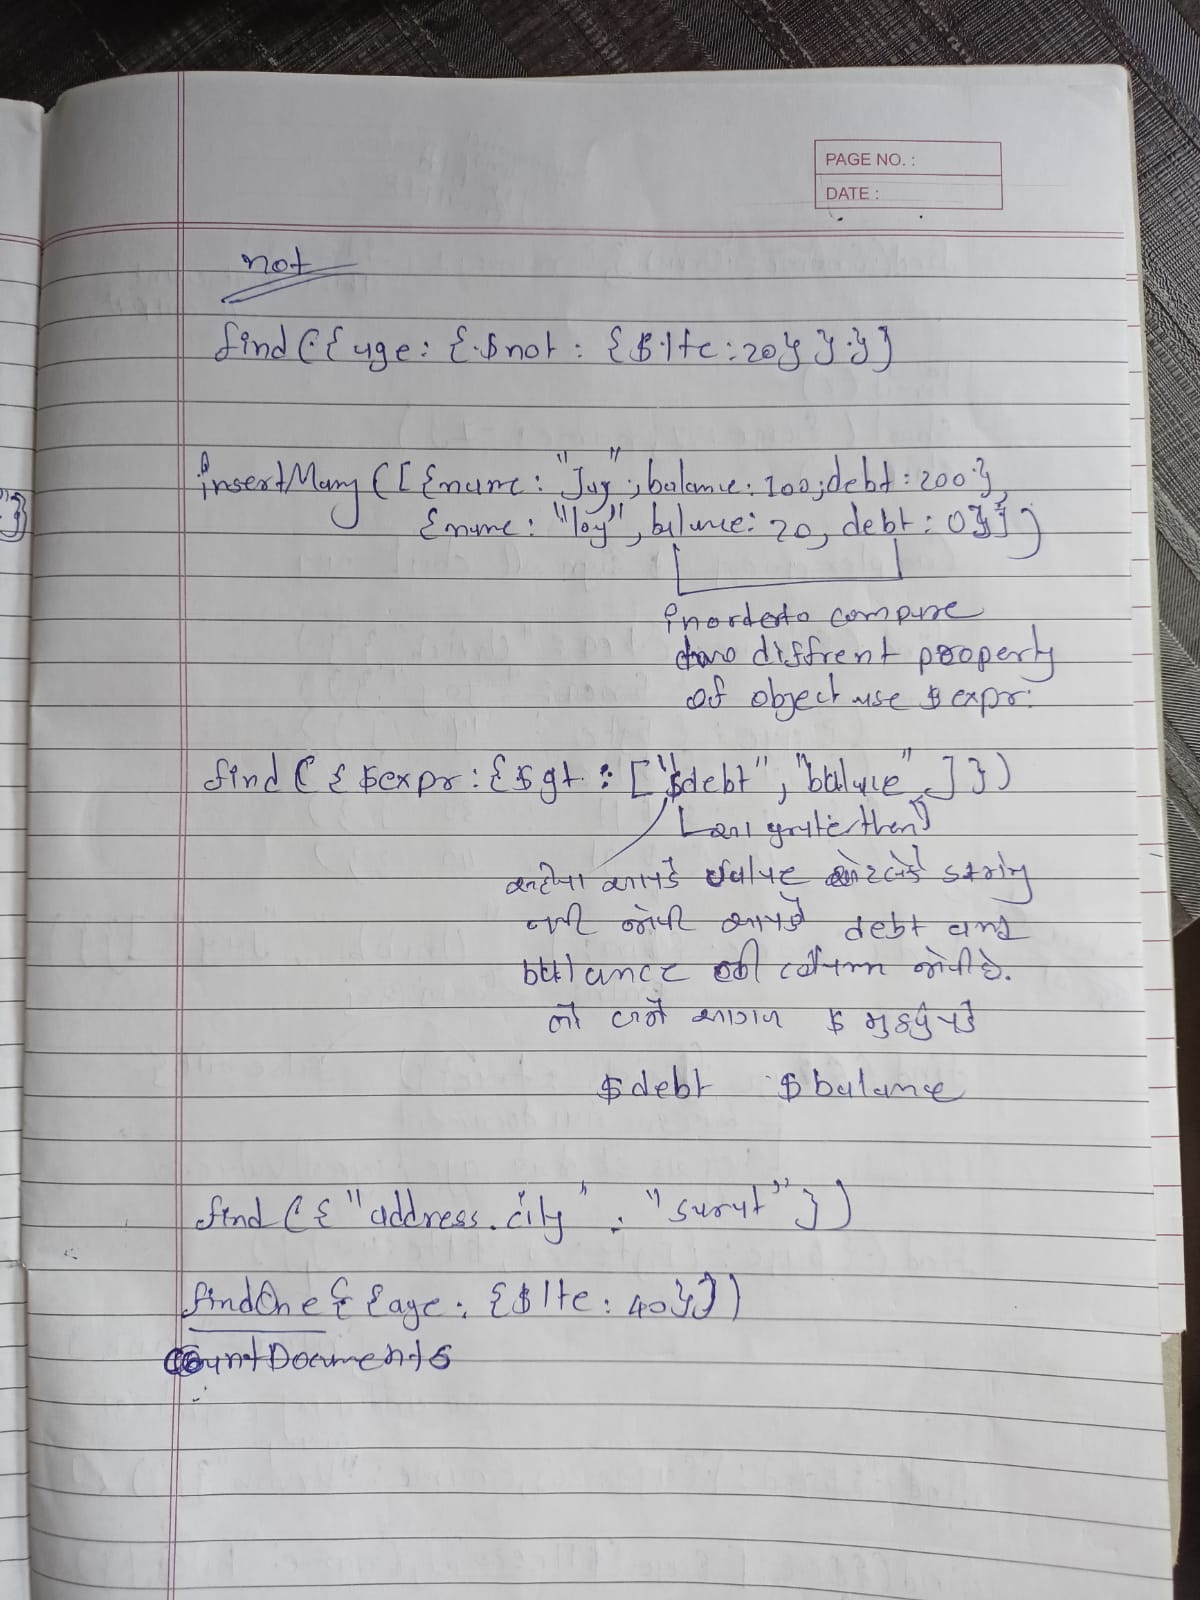 PAGE NO. :
DATE :
not
find ({ age: { $not : { $lte : 20} } })
insertMany ([ {name: "Jay", balance: 100, debt: 200},
{name: "loy", balance: 20, debt: 0}])
inorderto compare
two diffrent property
of object use $expr.
find ( { $expr: { $gt : ["$debt", "balance" ] })
greaterthen
આપડે
debt
balance જોવી છે.
તો બંને આગળ $ મુકવું પડે
$debt $balance
find ({ "address.city" : "surat" })
findOne ({age: {$lte: 40}})
countDocuments